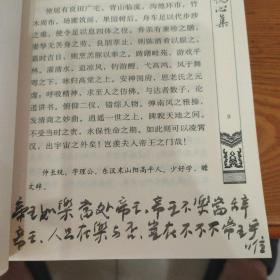 使居有良田广宅，背山临流，沟池环市，竹
木周布，场圃筑前，果园树后。舟车足以代步涉
之难，使令足以息四体之役。养亲有兼珍之膳，
妻孥无苦身之劳。良朋萃止，则陈酒肴以娱之，
嘉时吉日，则烹羔豚以奉之。蹰躇畦苑，游戏平
林，濯清水，追凉风，钓游鲤，弋高鸿。风于舞
雩之下，咏归高堂之上。安神闺房，思老氏之元
虚，呼吸精和，求至人之仿佛。与达者数子，论
道讲书，俯仰二仪，错综人物。弹南风之雅操，
发清商之妙曲。逍遥一世之上，睥睨天地之间，
不受当时之责，永保性命之期。如此则可以凌霄
汉，出宇宙之外矣！岂羡夫人帝王之门哉！
仲长统，字理公，东汉末山阳高平人，少好学，赡
文辞。
心集
9
帝王如乐富处帝王，帝王不乐富
帝王，人品在乐与否，岂在不不帝王乎